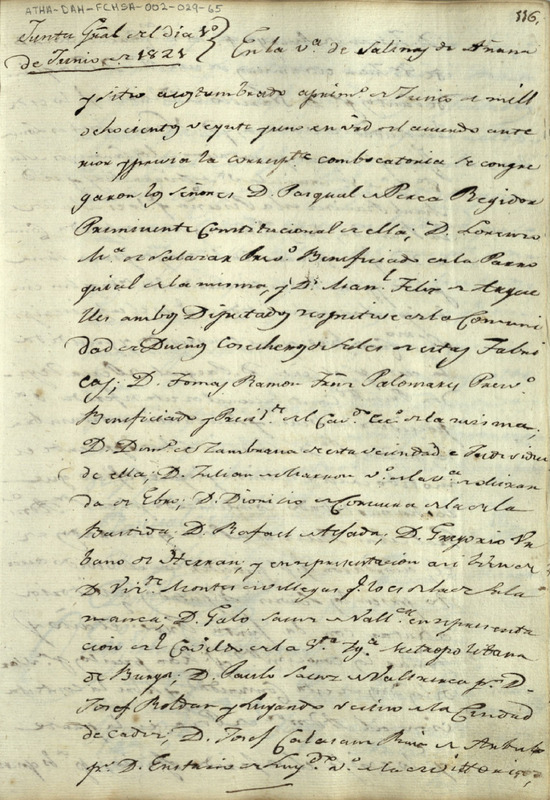 ATHA-DAH-FCHSA-002-029-65
116,
Junta Gral del dia 1º
de Junio de 1821
En la vª. de Salinas de Añana
y sitio acostumbrado a prim.º de Junio de mill
ochocientos veynte y uno en vrd del acuerdo ante
rior y previa la correspte combocatoria se congre
garon los Señores D. Pasqual de Perea Regidor
Preminente Constitucional de ella; D. Lorenzo
Mª. de Salazar Presvº. Beneficiado en la Parro
quial de la misma, y D. Manl. Felix de
ambos Diputados respective de la Comuni
dad de Dueños Cosecheros de Sales de estas Fabri
cas; D. Tomas Ramon Palomares Presvº.
Beneficiado y Presidte. del de la misma;
D. de esta vecindad e Individuo
de ella; D. Julian vº. de la vª. de Miran
da de Ebro; D. Dionicio de la de la
Bastida; D. Rafael D. Gregorio Ur
bano de Herran, y en representacion
D. Vizte. Montes qe. lo es de la de Sala
manca; D. Galo Saenz de en representa
cion del Cavildo de la Sta. Ygª. Metropolitana
de Burgos; D. Paulo Saenz de pr. D.
Josef Roldan y Luyando vecino de la Ciudad
de Cadiz; D. Josef Calasanz Ruiz de
pr. D. vº. de la de Vittoria;